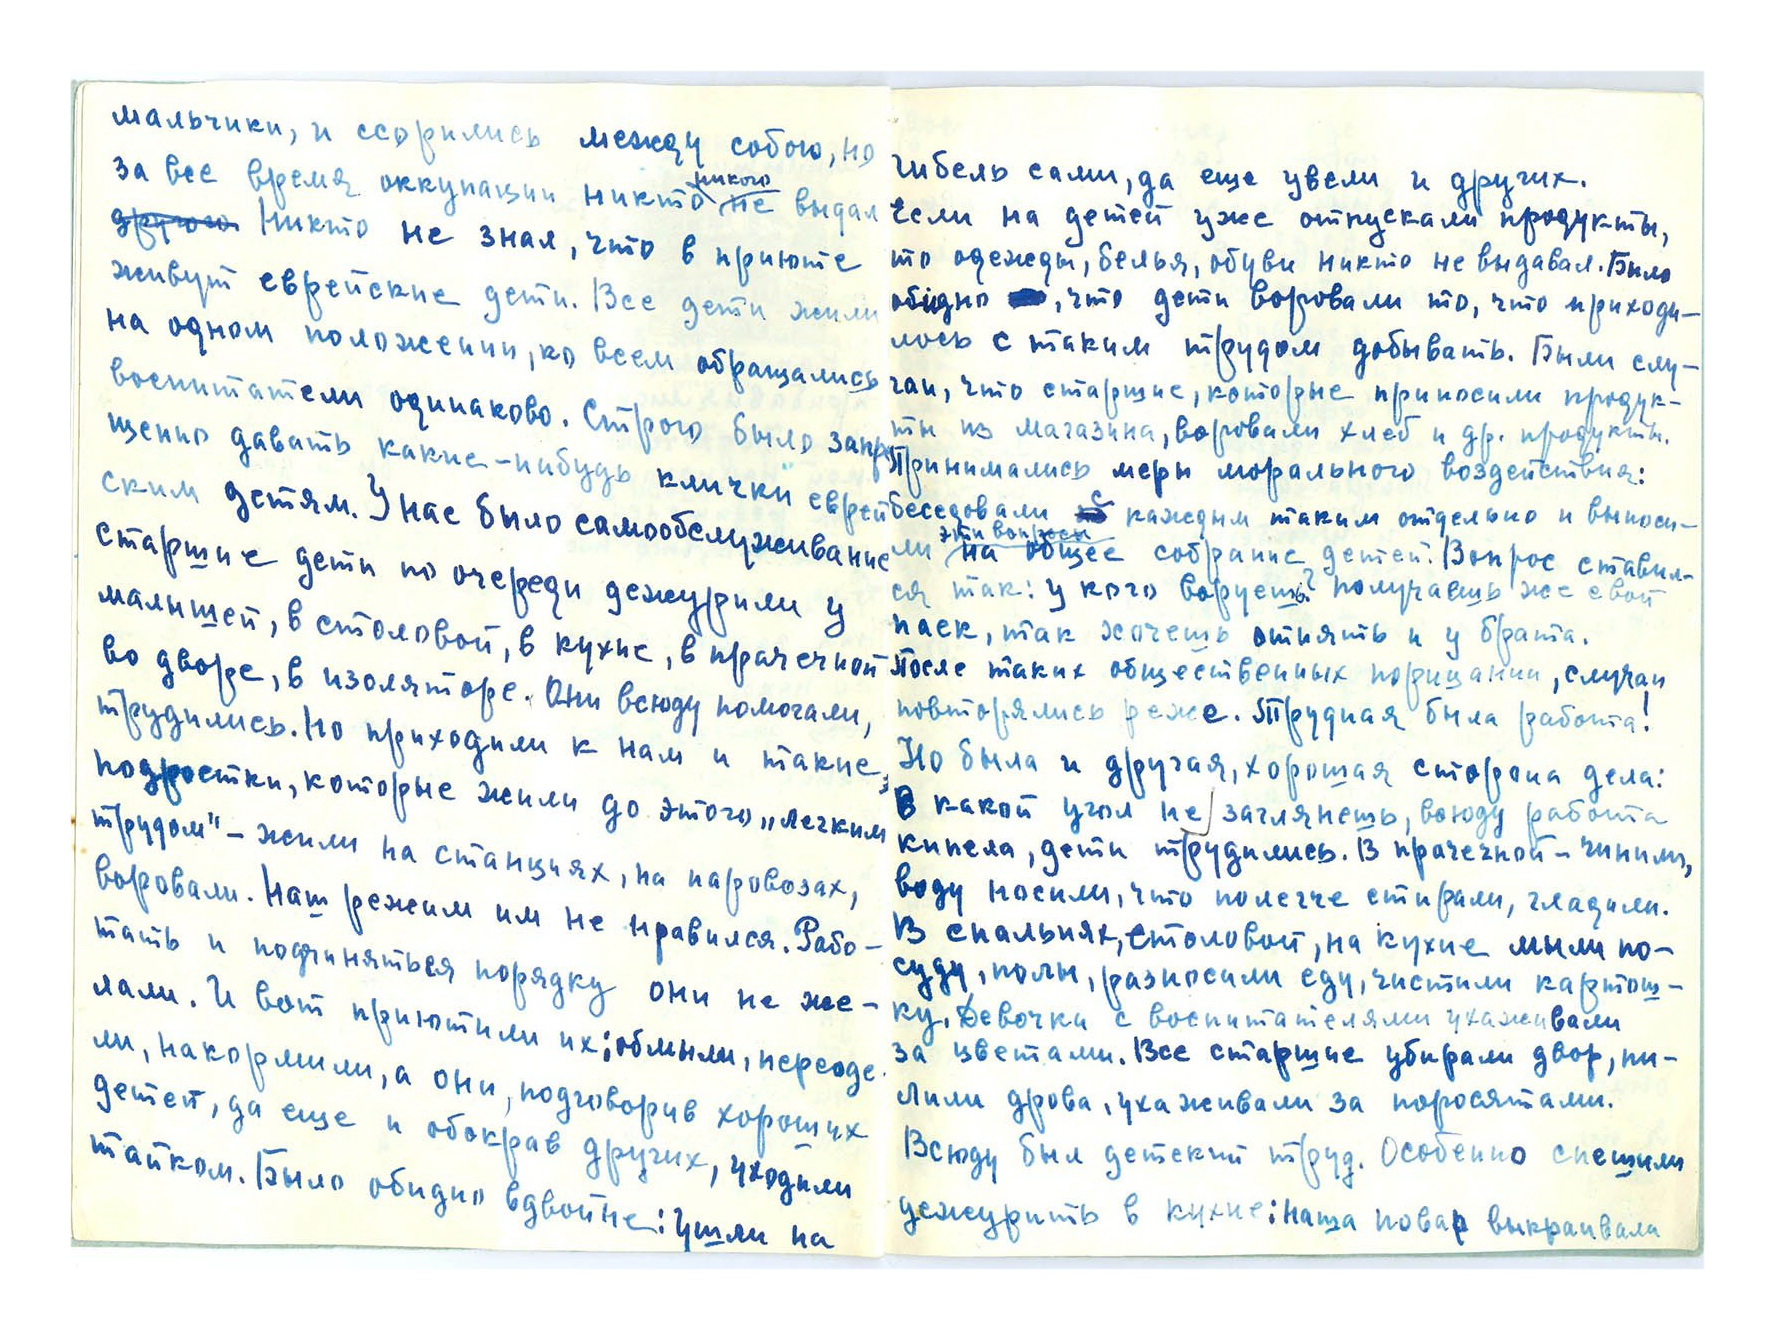 мальчики, и ссорились между собою, но
за все время оккупации никто никого не выдал
другого Никто не знал, что в приюте
живут еврейские дети. Все дети жили
на одном положении, ко всем обращались
воспитатели одинаково. Строго было запре
щенно давать какие-нибудь клички еврей
ским детям. У нас было самообслуживание
старшие дети по очереди дежурили у
малышей, в столовой, в кухне, в прачечной
во дворе, в изоляторе. Они всюду помогали,
трудились. Но приходили к нам и такие,
подростки, которые жили до этого „легким
трудом" – жили на станциях, на паровозах,
воровали. Наш режим им не нравился. Рабо-
тать и подчиняться порядку они не же-
лали. И вот приютили их; обмыли, переоде-
ли, накормили, а они, подговорив хороших
детей, да еще и обокрав других, уходили
тайком. Было обидно вдвойне: Ушли на
гибель сами, да еще увели и других.
Если на детей уже отпускали продукты,
то одежды, белья, обуви никто не выдавал. Было
обидно , что дети воровали то, что приходи-
лось с таким трудом добывать. Были слу-
чаи, что старшие, которые приносили продук-
ты из магазина, воровали хлеб и др. продукты.
Принимались меры морального воздействия:
беседовали с каждым таким отдельно и выноси-
ли эти вопросы на общее собрание детей. Вопрос ставил-
ся так: у кого воруешь? получаешь же свой
паек, так хочешь отнять и у брата.
После таких общественных порицании, случаи
повторялись реже. Трудная была работа!
Но была и другая, хорошая сторона дела:
В какой угол не заглянешь, всюду работа
кипела, дети трудились. В прачечной – чинили,
воду носили, что полегче стирали, гладили.
В спальнях, столовой, на кухне мыли по-
суду, полы, разносили еду, чистили картош-
ку. Девочки с воспитателями ухаживали
за цветами. Все старшие убирали двор, пи-
лили дрова, ухаживали за поросятами.
Всюду был детский труд. Особенно спешили
дежурить в кухне; наша повар выкраивала